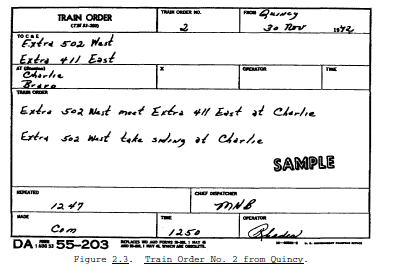 TRAIN ORDER
(TM 55-200)
TRAIN ORDER NO.
2
FROM Quincy
30 Nov 1972
TO C & E
Extra 502 West
Extra 411 East
AT (Station) X OPERATOR TIME
Charlie
Bravo
TRAIN ORDER
Extra 502 West meet Extra 411 East at Charlie
Extra 502 West take siding at Charlie
SAMPLE
REPEATED
1247
CHIEF DISPATCHER
MNB
MADE
Com
TIME
1250
OPERATOR
Rhodes
DA FORM 55-203
REPLACES WD AGO FORMS
WHICH ARE OBSOLETE.
Figure 2.3. Train Order No. 2 from Quincy.